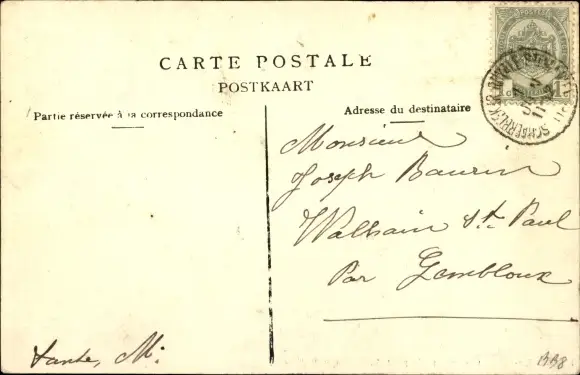 CARTE POSTALE
POSTKAART
Partie réservée à la correspondance
Adresse du destinataire
Monsieur
Joseph Baurin
Walhain St. Paul
Par Gembloux
Tante, M.